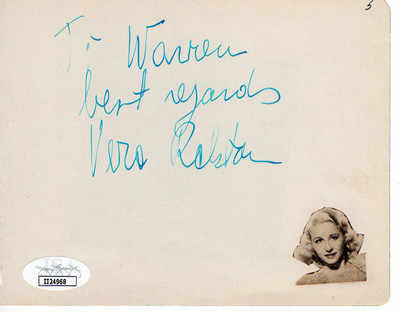 5
To Warren
best regards
Vera Ralston
JSA
II24968